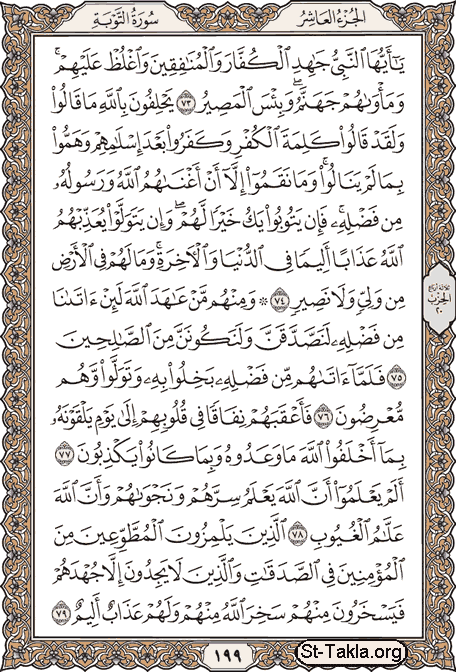 الجُزءُ العَاشِرُ
سُورَةُ التَّوبَةِ
يَٰٓأَيُّهَا ٱلنَّبِيُّ جَٰهِدِ ٱلۡكُفَّارَ وَٱلۡمُنَٰفِقِينَ وَٱغۡلُظۡ عَلَيۡهِمۡۚ
وَمَأۡوَىٰهُمۡ جَهَنَّمُۖ وَبِئۡسَ ٱلۡمَصِيرُ ٧٣ يَحۡلِفُونَ بِٱللَّهِ مَا قَالُواْ
وَلَقَدۡ قَالُواْ كَلِمَةَ ٱلۡكُفۡرِ وَكَفَرُواْ بَعۡدَ إِسۡلَٰمِهِمۡ وَهَمُّواْ
بِمَا لَمۡ يَنَالُواْۚ وَمَا نَقَمُوٓاْ إِلَّآ أَنۡ أَغۡنَىٰهُمُ ٱللَّهُ وَرَسُولُهُۥ
مِن فَضۡلِهِۦۚ فَإِن يَتُوبُواْ يَكُ خَيۡرٗا لَّهُمۡۖ وَإِن يَتَوَلَّوۡاْ يُعَذِّبۡهُمُ
ٱللَّهُ عَذَابًا أَلِيمٗا فِي ٱلدُّنۡيَا وَٱلۡأٓخِرَةِۚ وَمَا لَهُمۡ فِي ٱلۡأَرۡضِ
مِن وَلِيّٖ وَلَا نَصِيرٖ ٧٤ ۞ وَمِنۡهُم مَّنۡ عَٰهَدَ ٱللَّهَ لَئِنۡ ءَاتَىٰنَا
مِن فَضۡلِهِۦ لَنَصَّدَّقَنَّ وَلَنَكُونَنَّ مِنَ ٱلصَّٰلِحِينَ
٧٥ فَلَمَّآ ءَاتَىٰهُم مِّن فَضۡلِهِۦ بَخِلُواْ بِهِۦ وَتَوَلَّواْ وَّهُم
مُّعۡرِضُونَ ٧٦ فَأَعۡقَبَهُمۡ نِفَاقٗا فِي قُلُوبِهِمۡ إِلَىٰ يَوۡمِ يَلۡقَوۡنَهُۥ
بِمَآ أَخۡلَفُواْ ٱللَّهَ مَا وَعَدُوهُ وَبِمَا كَانُواْ يَكۡذِبُونَ ٧٧
أَلَمۡ يَعۡلَمُوٓاْ أَنَّ ٱللَّهَ يَعۡلَمُ سِرَّهُمۡ وَنَجۡوَىٰهُمۡ وَأَنَّ ٱللَّهَ
عَلَّٰمُ ٱلۡغُيُوبِ ٧٨ ٱلَّذِينَ يَلۡمِزُونَ ٱلۡمُطَّوِّعِينَ مِنَ
ٱلۡمُؤۡمِنِينَ فِي ٱلصَّدَقَٰتِ وَٱلَّذِينَ لَا يَجِدُونَ إِلَّا جُهۡدَهُمۡ
فَيَسۡخَرُونَ مِنۡهُمۡ سَخِرَ ٱللَّهُ مِنۡهُمۡ وَلَهُمۡ عَذَابٌ أَلِيمٌ ٧٩
ثلاثة أرباع
الحزب
٢٠
١٩٩
St-Takla.org